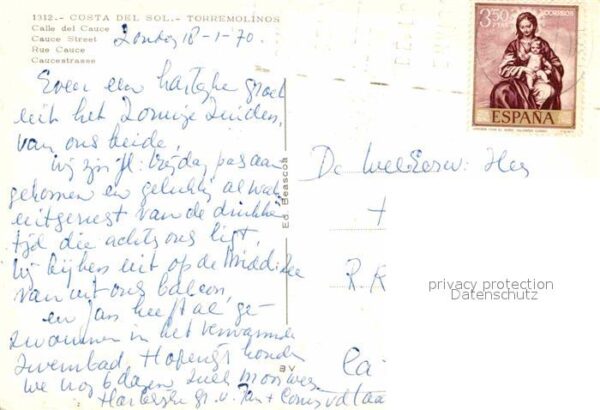 1312.- COSTA DEL SOL.- TORREMOLINOS
Calle del Cauce
Cauce Street
Rue Cauce
Caucestrasse
Zondag 18-1-70.
Even een hartelyke groet
uit het Zonnige Zuiden,
van ons beide,
Wy zijn jl. Vrydag pas aan
gekomen en gelukkig al wat
uitgerust van de drukke
tyd die achter ons ligt,
Wy kyken uit op de Middl. Zee
van uit ons balcon,
en Jan heeft al ge-
zwommen in het verwarmde
zwembad, Hopenlijk houden
we nog 6 dagen zulk mooi weer
Hartelyke gr. v. Jan +
Ed. Beascoa
av
3,50
PTAS
CORREOS
ESPAÑA
De Weleerw: Heer
+
R.K
Ca
privacy protection
Datenschutz